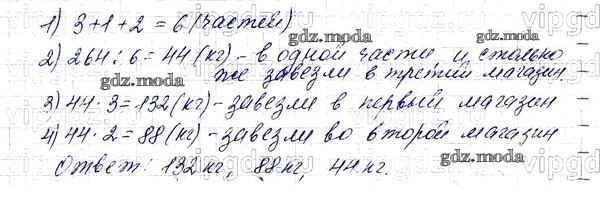 1) 3+1+2 = 6 (частей)
2) 264 : 6 = 44 (кг) - в одной части и столько
же завезли в третий магазин
3) 44 · 3 = 132 (кг) - завезли в первый магазин
4) 44 · 2 = 88 (кг) - завезли во второй магазин
Ответ: 132 кг, 88 кг, 44 кг.
gdz.moda
gdz.moda
gdz.moda
gdz.moda
gdz.moda